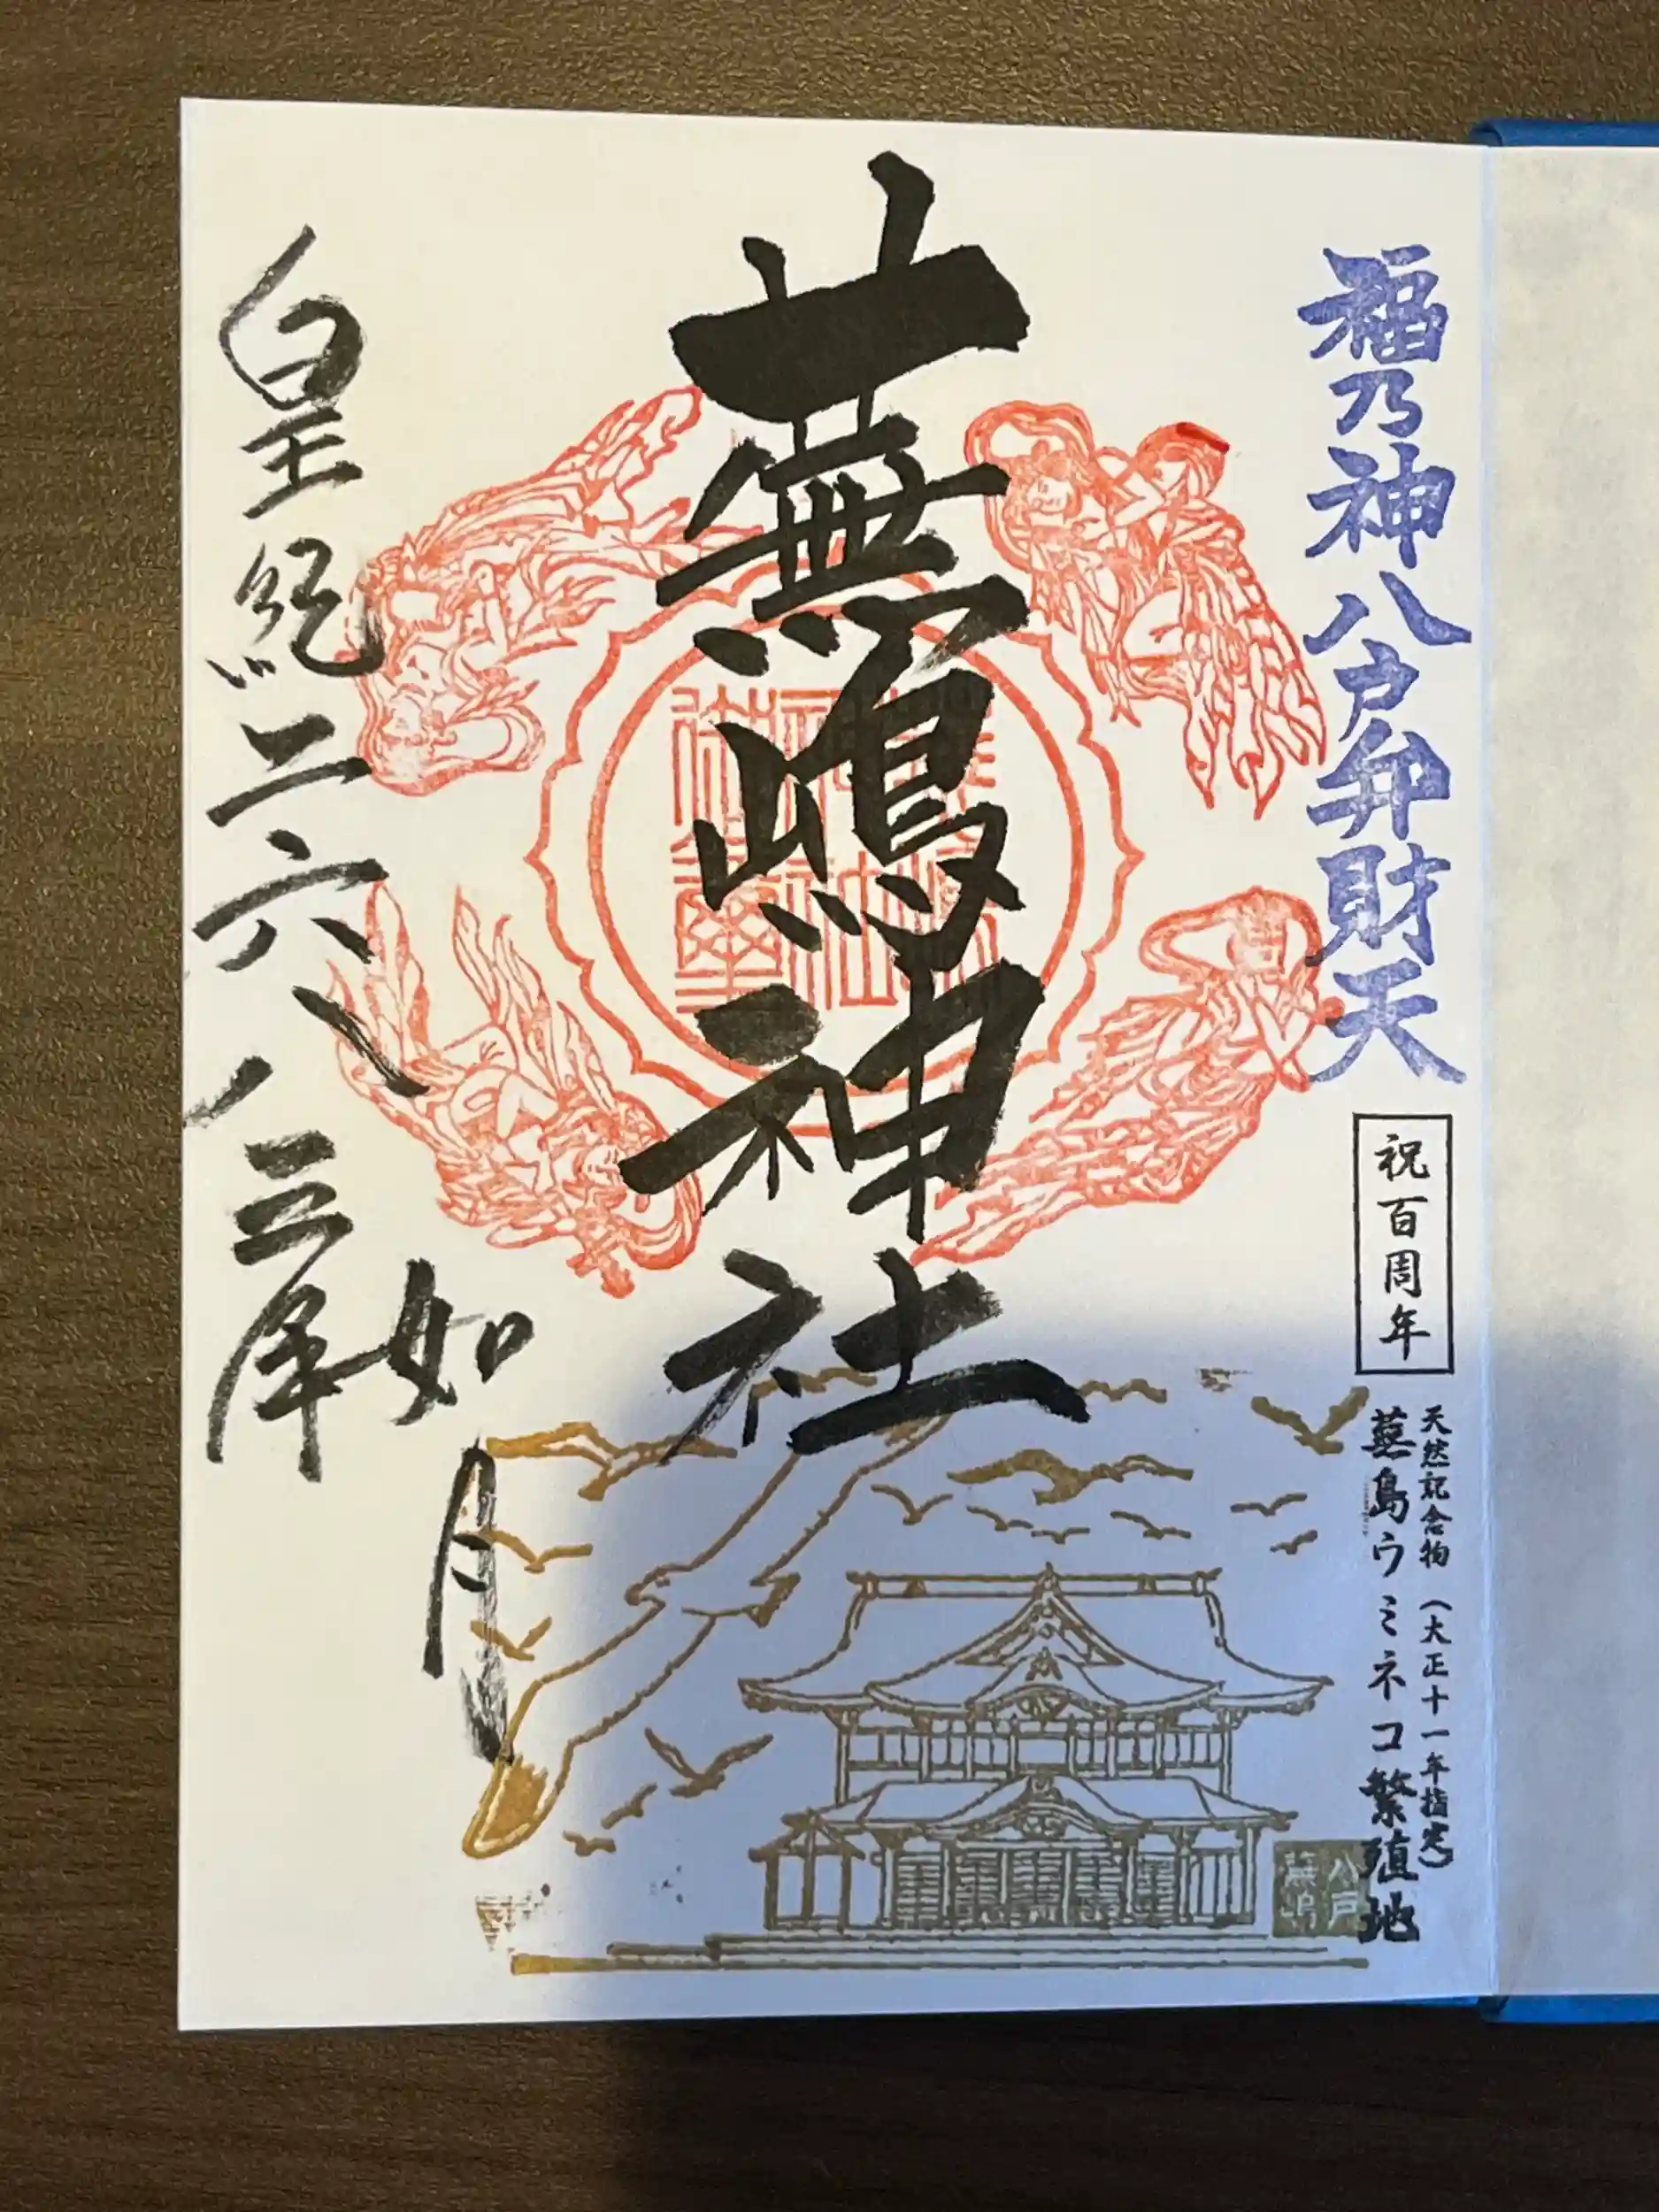 福乃神八戸弁財天
祝百周年
天然記念物（大正十一年指定）
蕪島ウミネコ繁殖地
八戸
蕪嶋
蕪嶋神社
皇紀二六八三年
如月